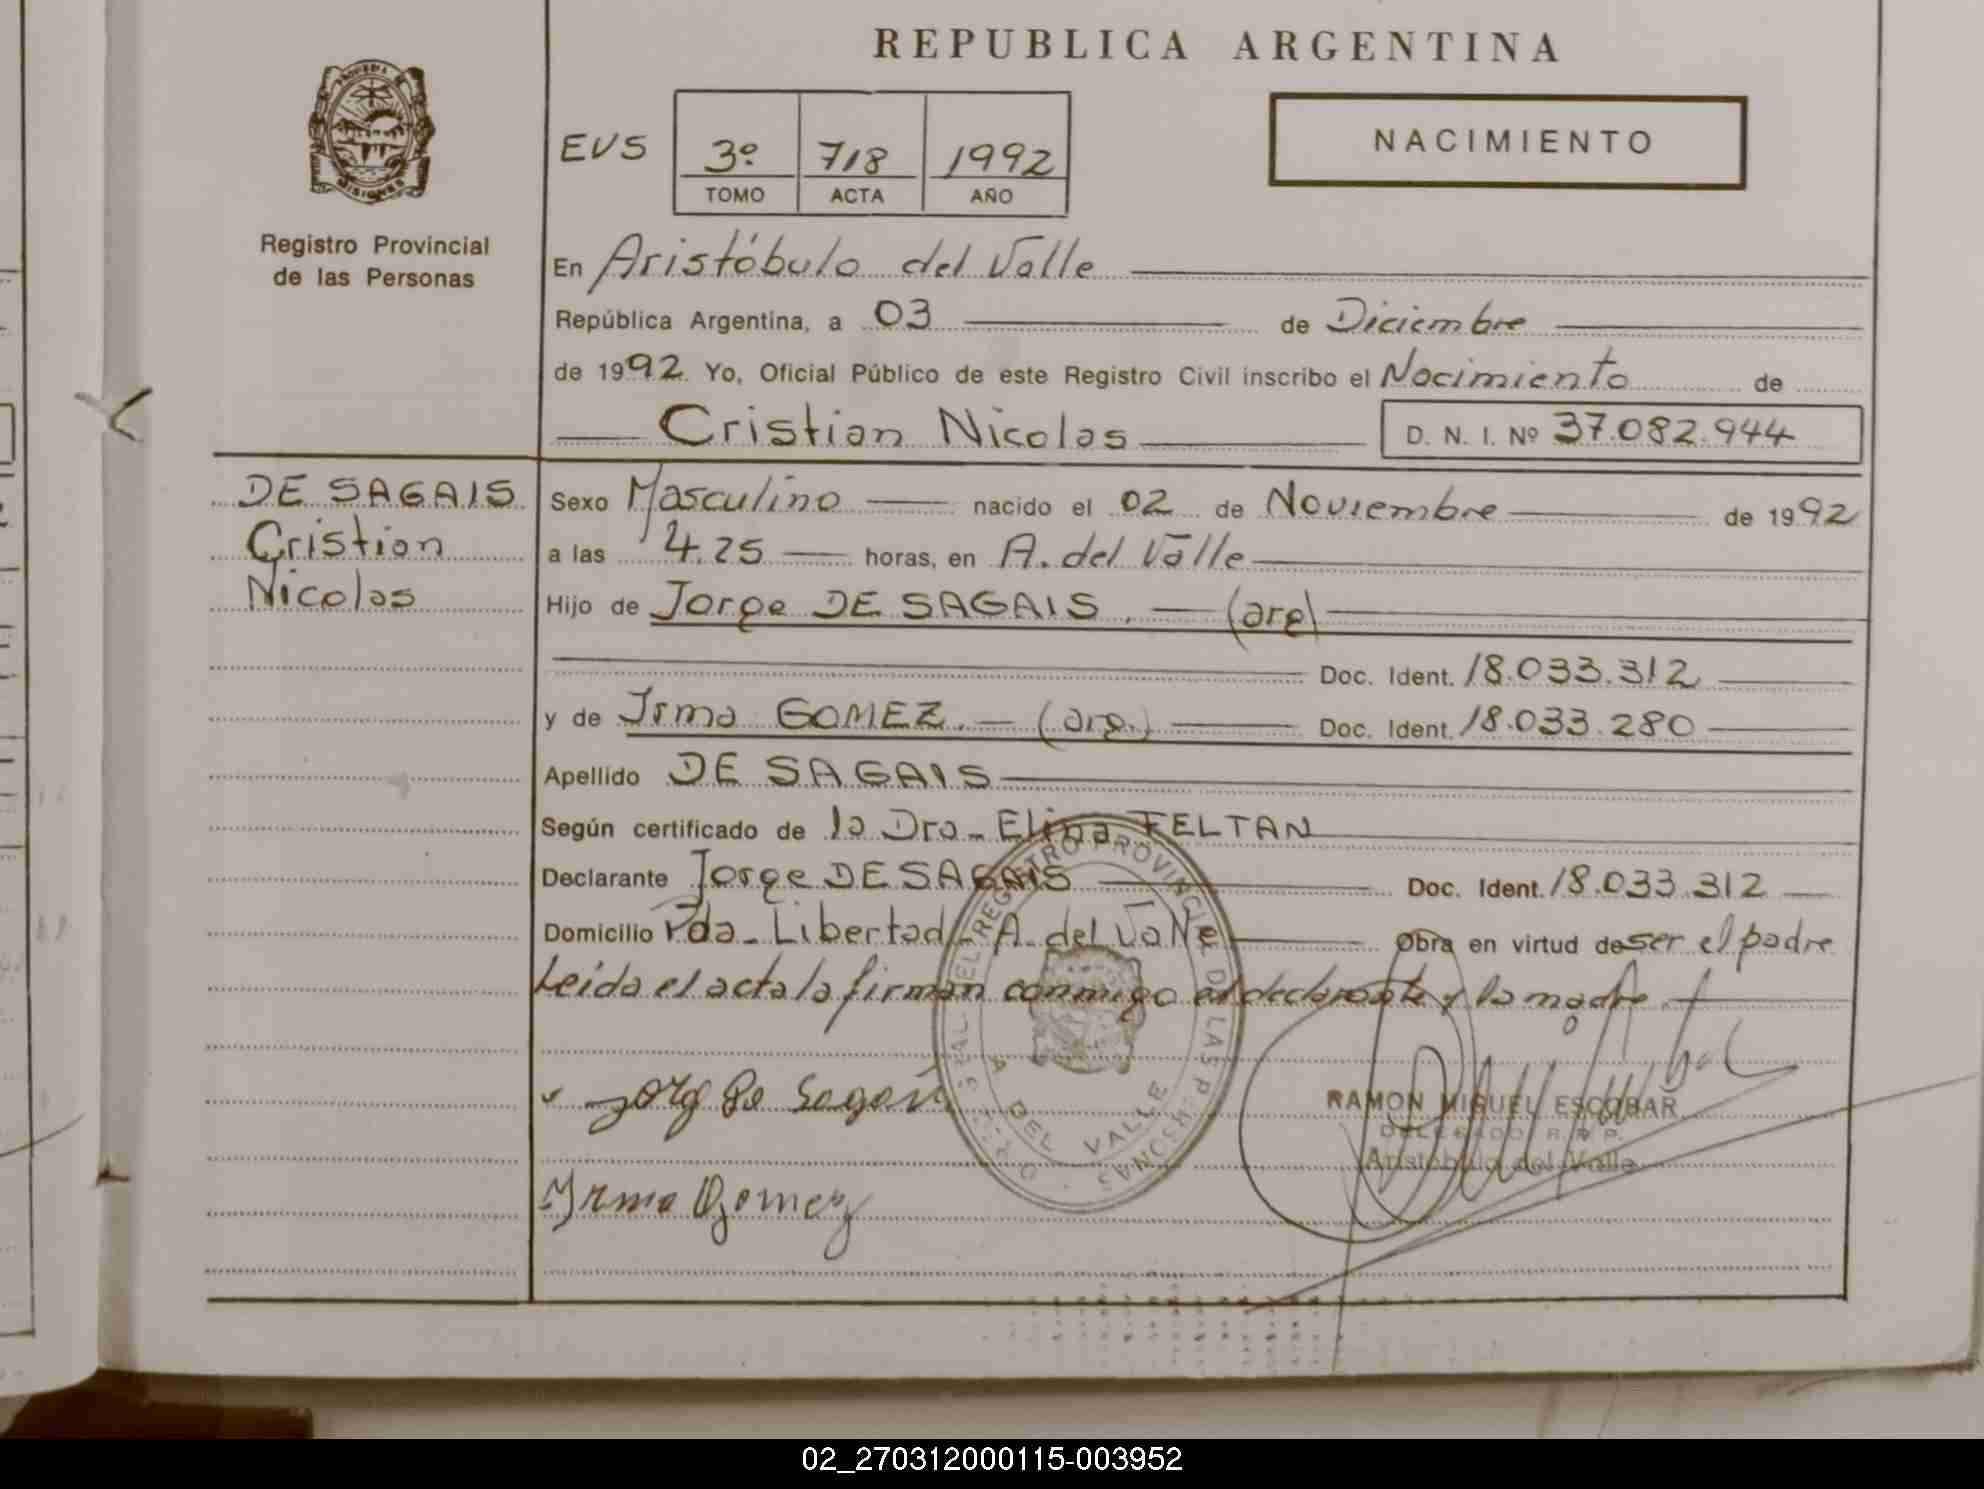 REPUBLICA ARGENTINA
NACIMIENTO
EVS
3º 718 1992
TOMO ACTA AÑO
PROVINCIA DE MISIONES
Registro Provincial
de las Personas
En Aristóbulo del Valle
República Argentina, a 03 de Diciembre
de 1992. Yo, Oficial Público de este Registro Civil inscribo el Nacimiento de
Cristian Nicolas D. N. I. Nº 37.082.944
DE SAGAIS
Cristian
Nicolas
Sexo Masculino nacido el 02 de Noviembre de 1992
a las 4.25 horas, en A. del Valle
Hijo de Jorge DE SAGAIS. (arg)
Doc. Ident. 18.033.312
y de Irma GOMEZ. (arg.) Doc. Ident. 18.033.280
Apellido DE SAGAIS
Según certificado de la Dra. Elina FELTAN
Declarante Jorge DE SAGAIS Doc. Ident. 18.033.312
Domicilio Pda. Libertad - A. del Valle Obra en virtud de ser el padre
Leida el acta la firman conmigo el declarante y la madre
REGISTRO PROVINCIAL DE LAS PERSONAS
A. DEL VALLE
Jorg De Sagais
RAMON MIGUEL ESCOBAR
DELEGADO R. R. P.
Aristóbulo del Valle
Irma Gomez
02_270312000115-003952